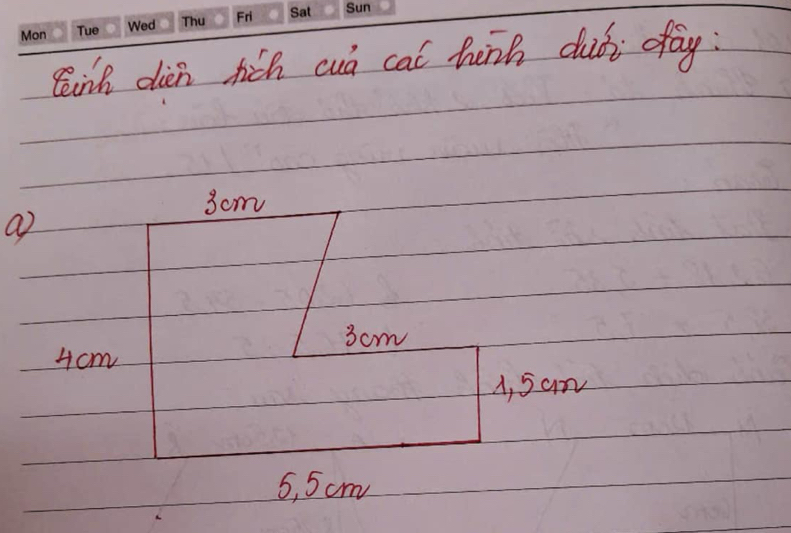 Mon Tue Wed Thu Fri Sat Sun
Tính diện tích của các hình dưới đây:
a)
3cm
4cm
3cm
1,5cm
5,5cm